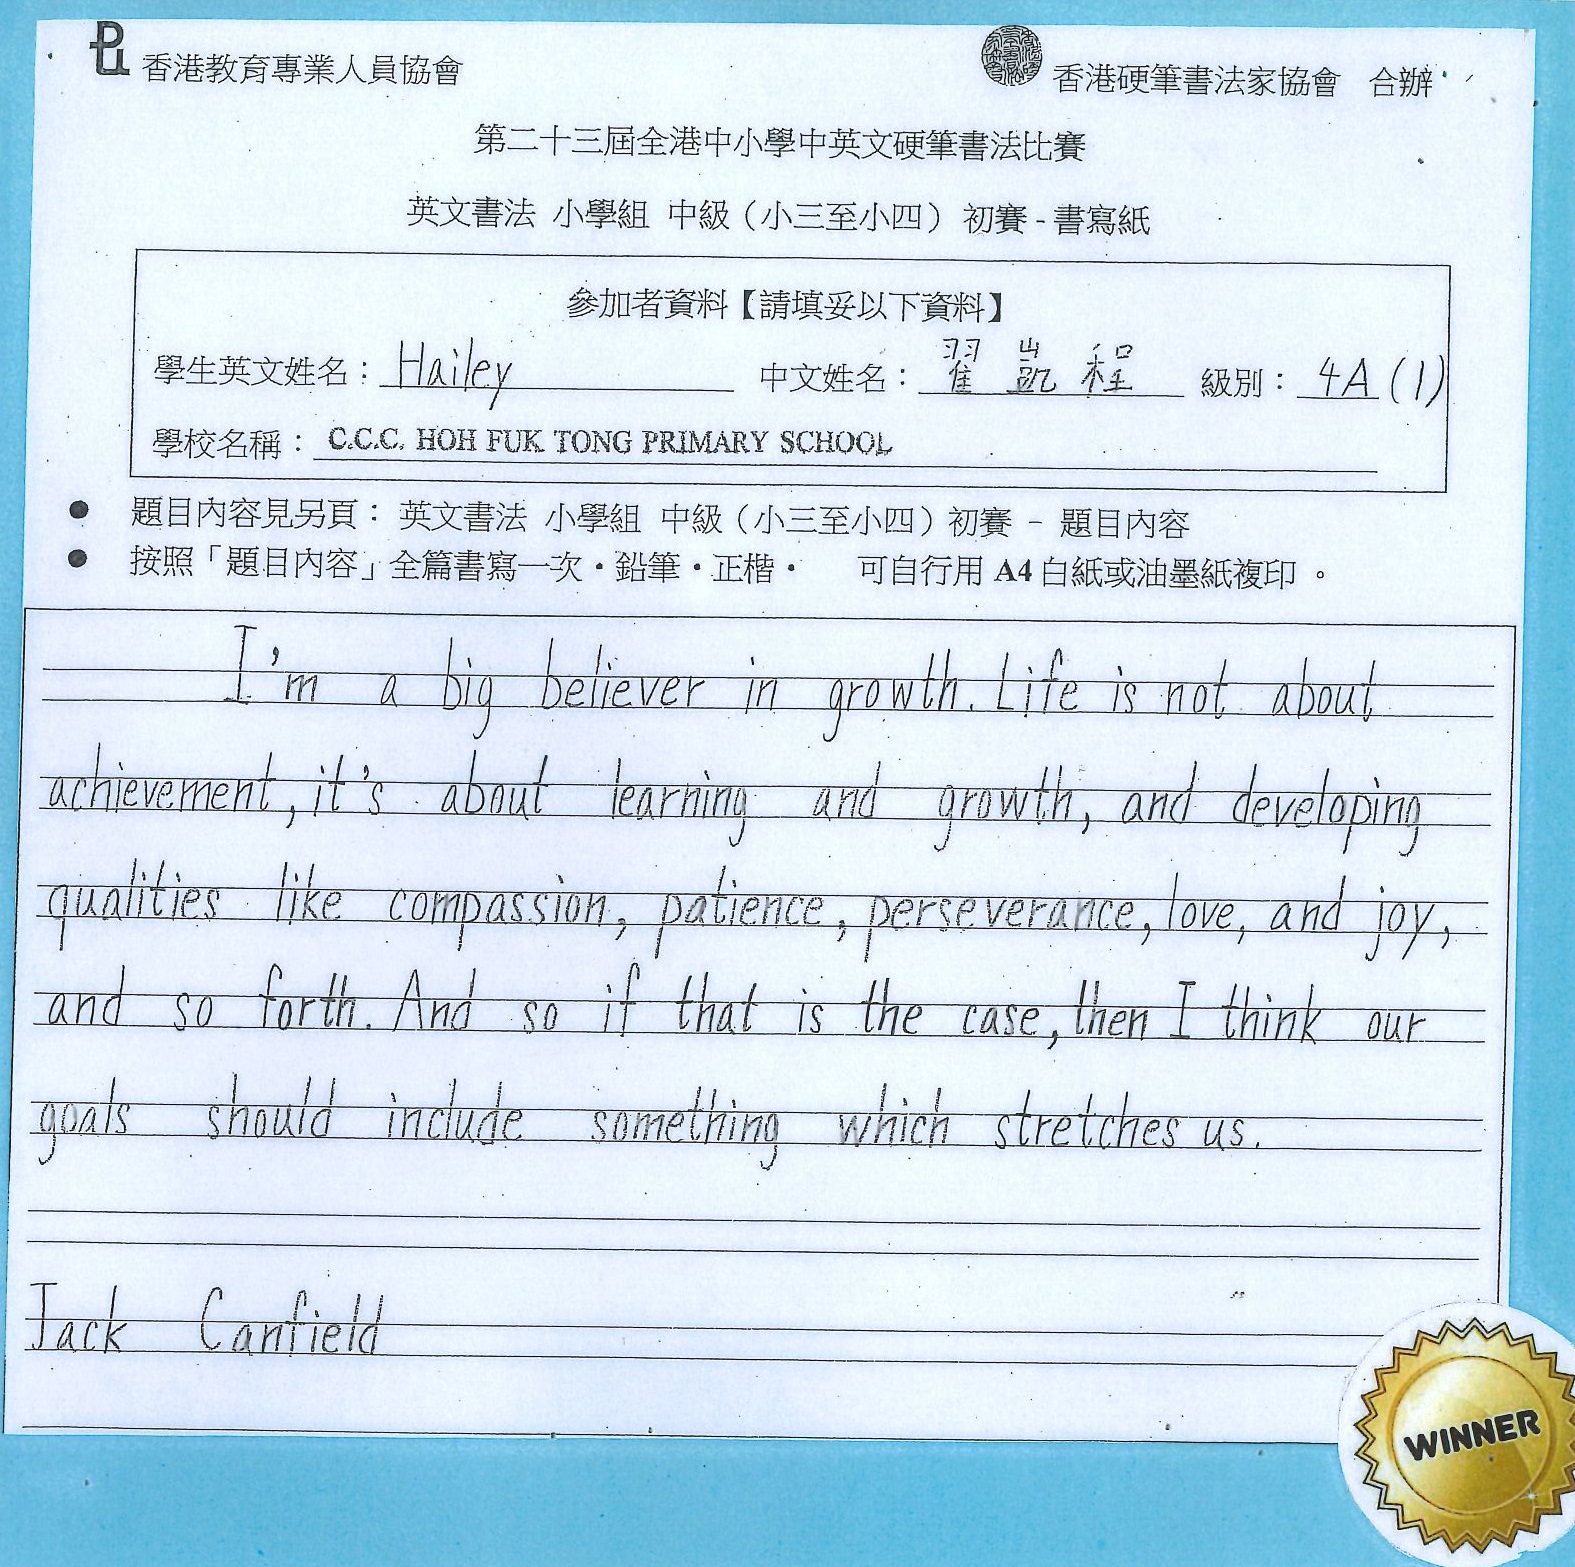 香港教育專業人員協會
香港硬筆書法家協會 合辦
第二十三屆全港中小學中英文硬筆書法比賽
英文書法 小學組 中級（小三至小四） 初賽 - 書寫紙
參加者資料【請填妥以下資料】
學生英文姓名： Hailey 中文姓名： 翟凱程 級別： 4A (1)
學校名稱： C.C.C. HOH FUK TONG PRIMARY SCHOOL
● 題目內容見另頁： 英文書法 小學組 中級（小三至小四）初賽 - 題目內容
● 按照「題目內容」全篇書寫一次・鉛筆・正楷・ 可自行用 A4 白紙或油墨紙複印 。
I'm a big believer in growth. Life is not about
achievement, it's about learning and growth, and developing
qualities like compassion, patience, perseverance, love, and joy,
and so forth. And so if that is the case, then I think our
goals should include something which stretches us.
Jack Canfield
WINNER